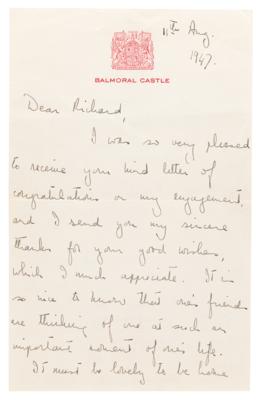 11th Aug.
1947.
BALMORAL CASTLE
Dear Richard,
I was so very pleased
to receive your kind letter of
congratulations on my engagement,
and I send you my sincere
thanks for your good wishes,
which I much appreciate. It is
so nice to know that one's friends
are thinking of one at such an
important moment of one's life.
It must be lovely to be home